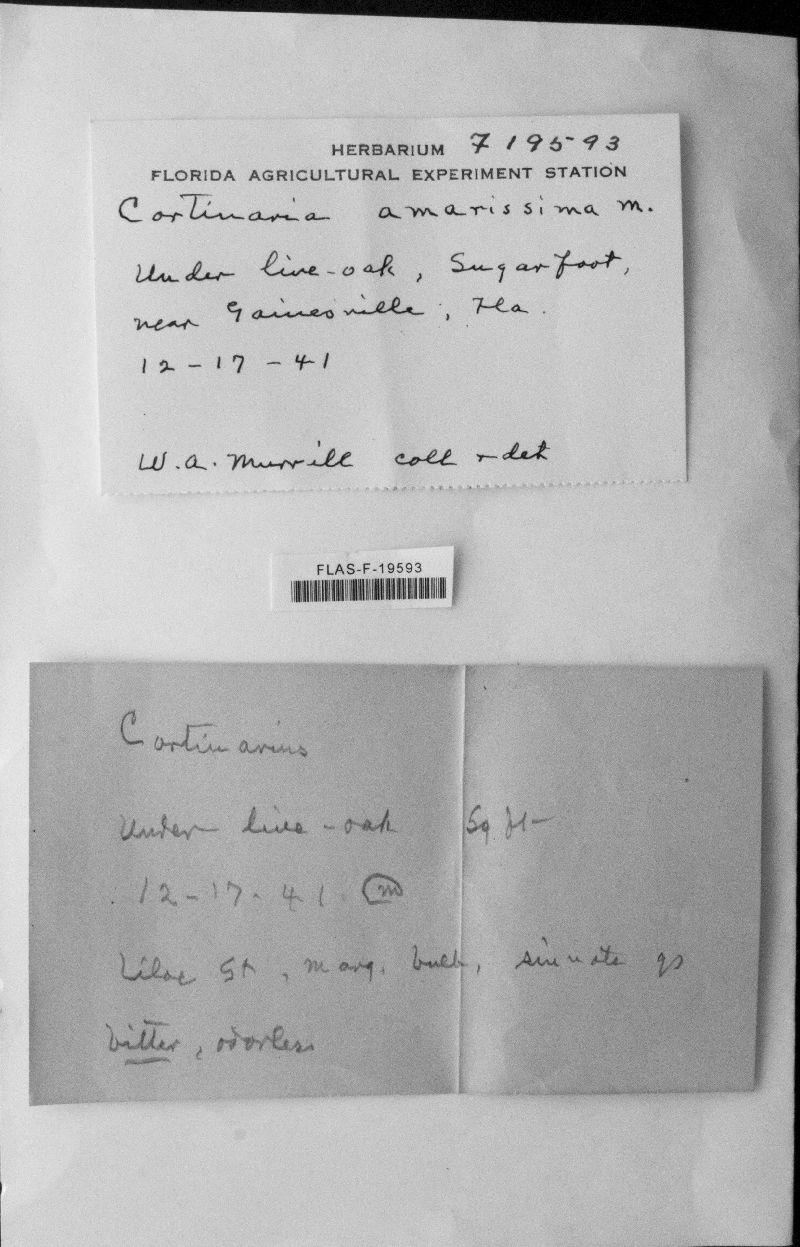 HERBARIUM F19593
FLORIDA AGRICULTURAL EXPERIMENT STATION
Cortinaria amarissima M.
Under live-oak, Sugarfoot,
near Gainesville, Fla.
12-17-41
W.A. Murrill coll & det
FLAS-F-19593
Cortinarius
Under live-oak Sq ft
12-17-41. m
Lilac St, marg. bulb, sinuate gs
bitter, odorless